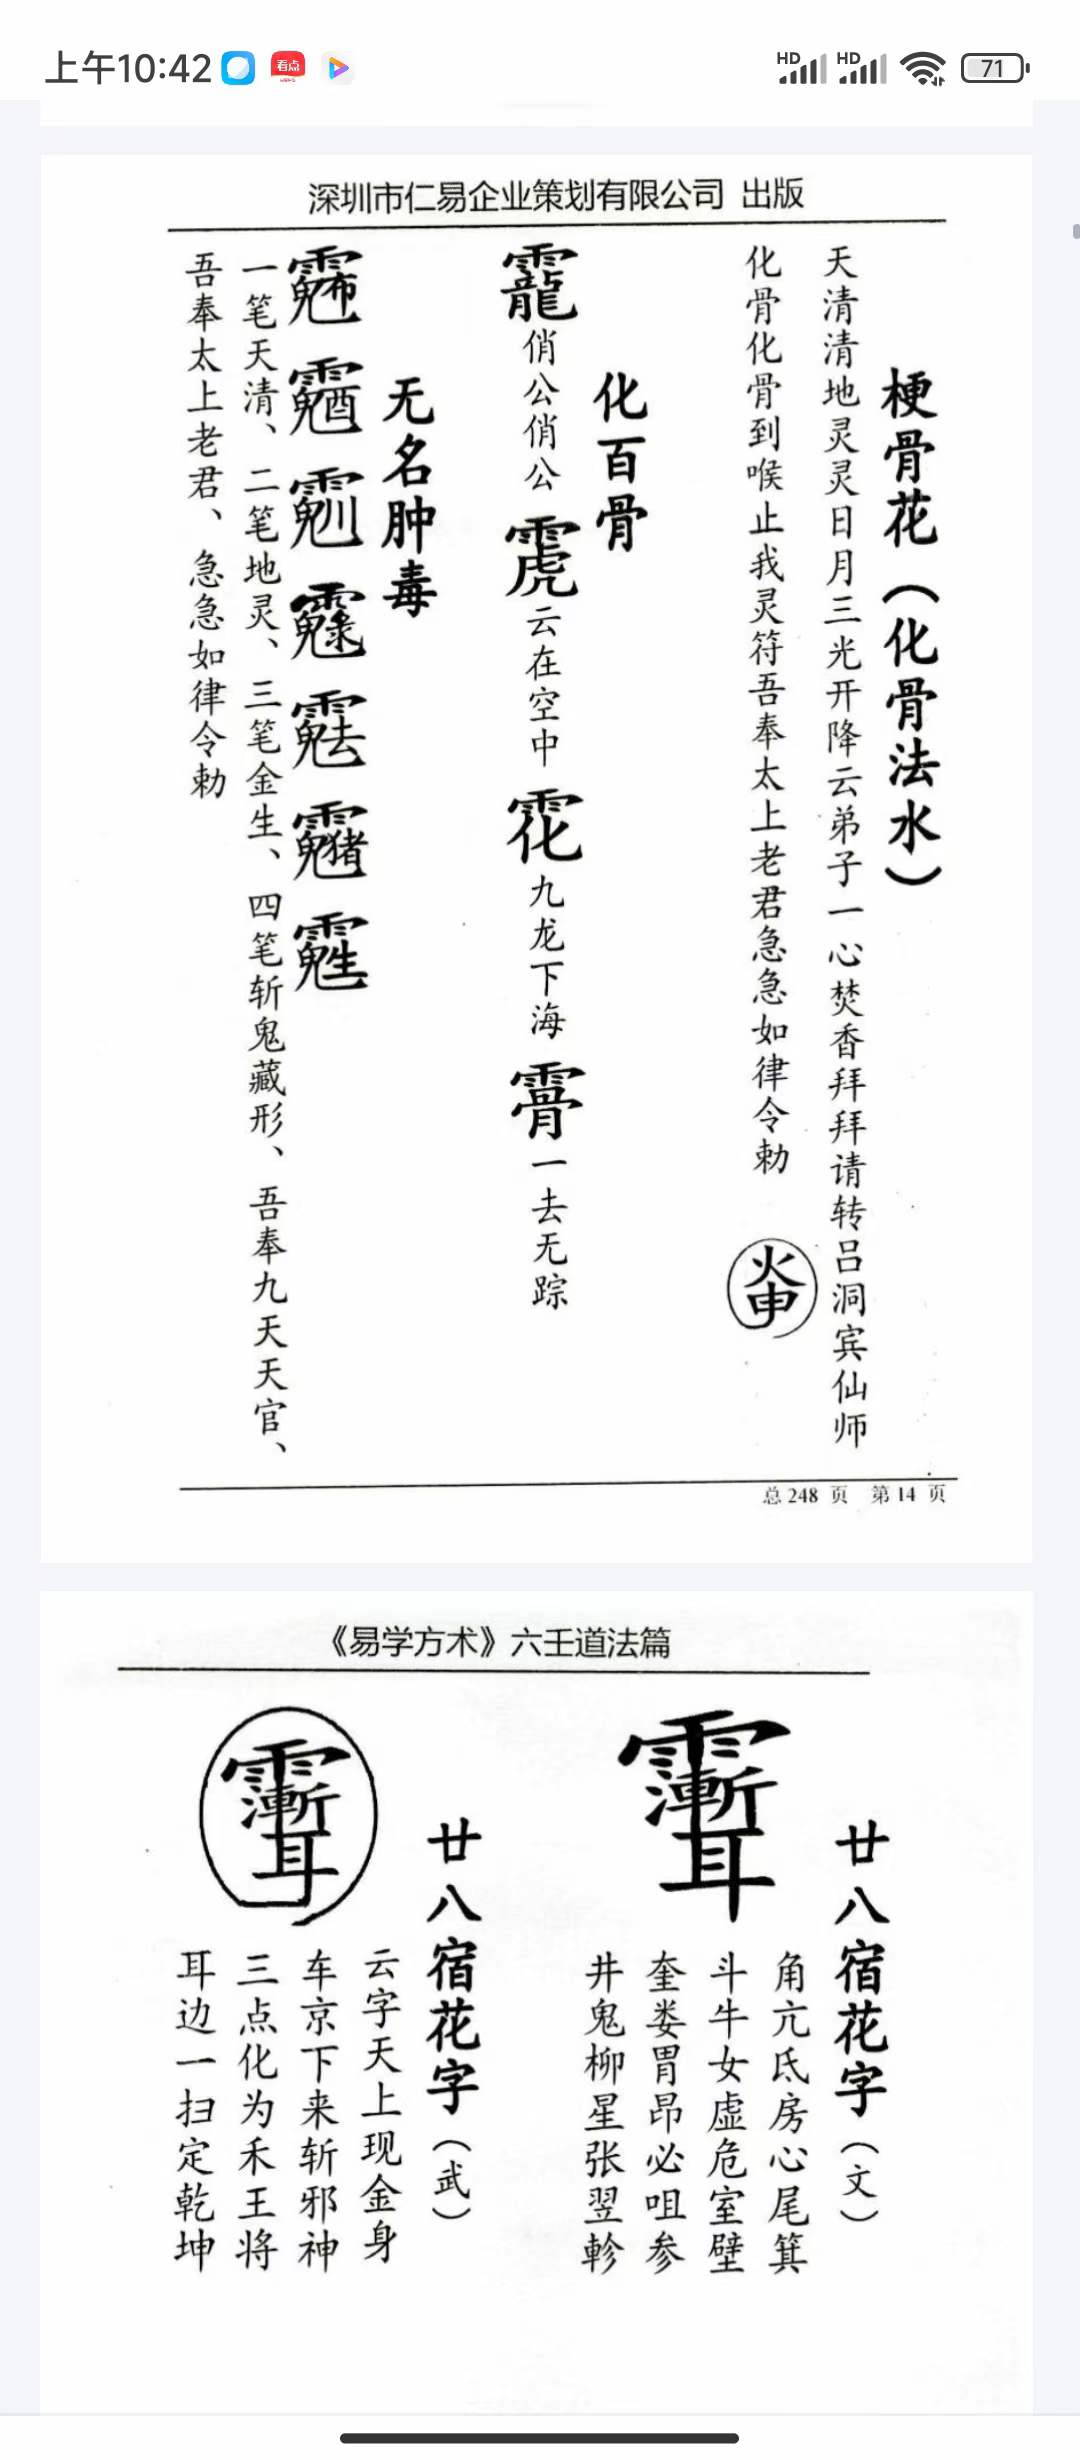 上午10:42
看点
HD
HD
71
深圳市仁易企业策划有限公司 出版
梗骨花（化骨法水）
天清清地灵灵日月三光开降云弟子一心焚香拜拜请转吕洞宾仙师
化骨化骨到喉止我灵符吾奉太上老君急急如律令勅
化百骨
俏公俏公
云在空中
九龙下海
一去无踪
无名肿毒
一笔天清、二笔地灵、三笔金生、四笔斩鬼藏形、吾奉九天天官、
吾奉太上老君、急急如律令勅
总 248 页 第 14 页
《易学方术》六壬道法篇
廿八宿花字（文）
角亢氐房心尾箕
斗牛女虚危室壁
奎娄胃昂必咀参
井鬼柳星张翌軫
廿八宿花字（武）
云字天上现金身
车京下来斩邪神
三点化为禾王将
耳边一扫定乾坤